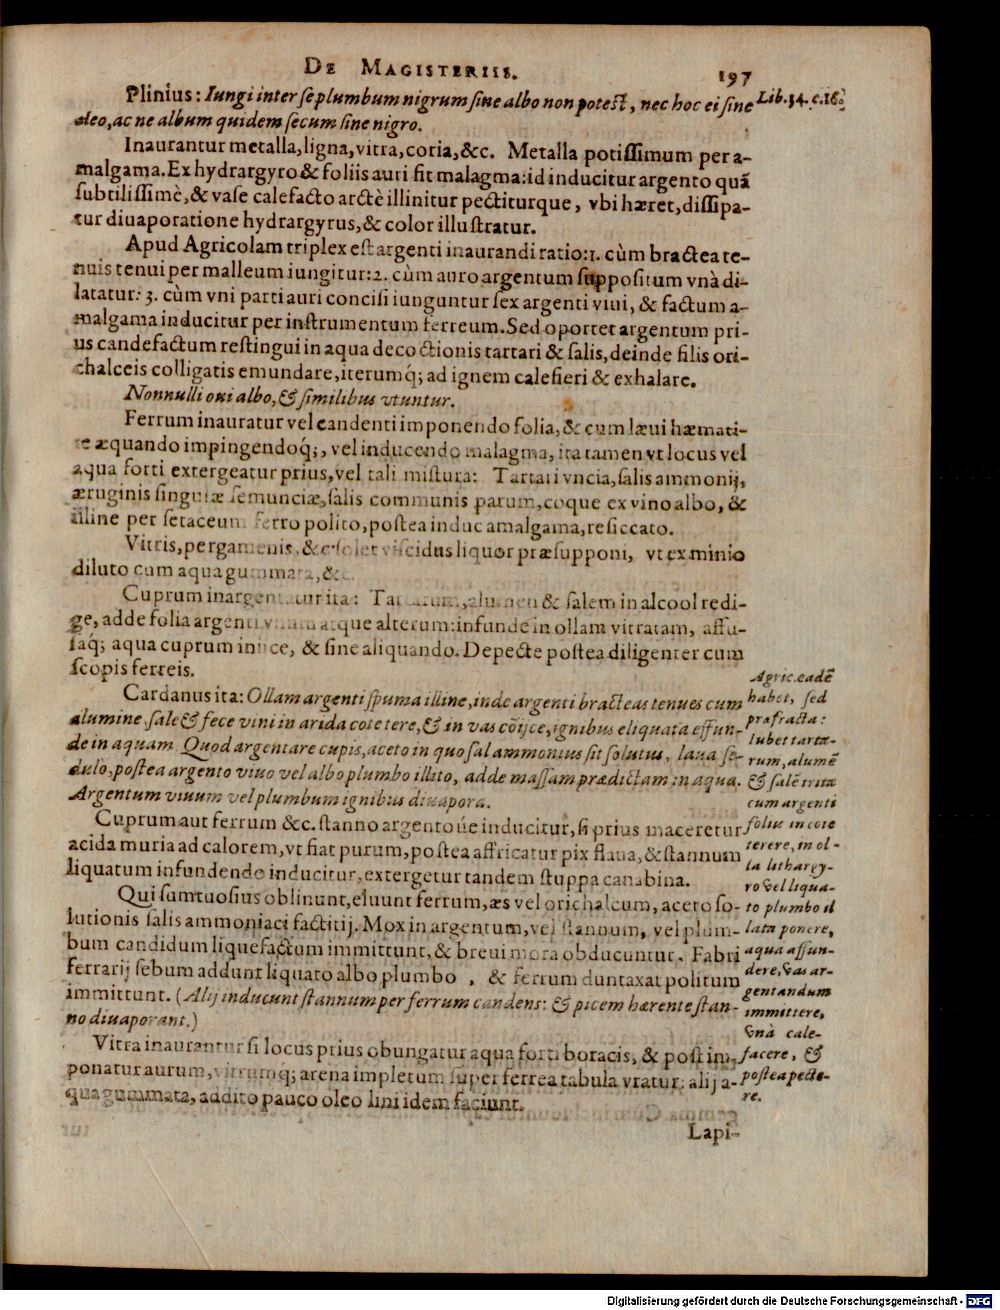 DE MAGISTERIIS.
197
Plinius: Iungi inter se plumbum nigrum sine albo non potest, nec hoc ei sine
oleo, ac ne album quidem secum sine nigro.
Lib. 34. c. 16.
Inaurantur metalla, ligna, vitra, coria, &c. Metalla potissimum per a-
malgama. Ex hydrargyro & foliis auri fit malagma: id inducitur argento quã
subtilissimè, & vase calefacto arctè illinitur pectiturque, vbi hæret, dissipa-
tur diuaporatione hydrargyrus, & color illustratur.
Apud Agricolam triplex est argenti inaurandi ratio: 1. cùm bractea te-
nuis tenui per malleum iungitur: 2. cùm auro argentum suppositum vnà di-
latatur: 3. cùm vni parti auri concisi iunguntur sex argenti viui, & factum a-
malgama inducitur per instrumentum ferreum. Sed oportet argentum pri-
us candefactum restingui in aqua decoctionis tartari & salis, deinde filis ori-
chalceis colligatis emundare, iterumq́; ad ignem calefieri & exhalare.
Nonnulli oui albo, & similibus vtuntur.
Ferrum inauratur vel candenti imponendo folia, & cum læui hæmati-
te æquando impingendoq́;, vel inducendo malagma, ita tamen vt locus vel
aqua forti extergeatur prius, vel tali mistura: Tartari vncia, salis ammonij,
æruginis singulæ semunciæ, salis communis parum, coque ex vino albo, &
illine per setaceum ferro polito, postea induc amalgama, resiccato.
Vitris, pergamenis, &c. solet viscidus liquor præsupponi, vt ex minio
diluto cum aqua gummata, &c.
Cuprum inargentatur ita: Tartarum, alumen & salem in alcool redi-
ge, adde folia argenti vnum atque alterum: infunde in ollam vitratam, affu-
saq́; aqua cuprum iniice, & sine aliquando. Depecte postea diligenter cum
scopis ferreis.
Cardanus ita: Ollam argenti spuma illine, inde argenti bracteas tenues cum
alumine, sale & fece vini in arida cote tere, & in vas cõijce, ignibus eliquata effun-
de in aquam. Quod argentare cupis, aceto in quo sal ammonius sit solutus, laua se-
dulo, postea argento viuo vel albo plumbo illito, adde massam prædictam in aqua.
Argentum viuum vel plumbum ignibus diuapora.
Cuprum aut ferrum &c. stanno argentoúe inducitur, si prius maceretur
acida muria ad calorem, vt fiat purum, postea affricatur pix flaua, & stannum
liquatum infundendo inducitur, extergetur tandem stuppa canabina.
Qui sumtuosius oblinunt, eluunt ferrum, æs vel orichalcum, aceto so-
lutionis salis ammoniaci factitij. Mox in argentum, vel stannum, vel plum-
bum candidum liquefactum immittunt, & breui mora obducuntur. Fabri
ferrarij sebum addunt liquato albo plumbo, & ferrum duntaxat politum
immittunt. (Alij inducunt stannum per ferrum candens: & picem hærente stan-
no diuaporant.)
Vitra inaurantur si locus prius obungatur aqua forti boracis, & post im-
ponatur aurum, vitrumq; arena impletum super ferrea tabula vratur: alij a-
qua gummata, addito pauco oleo lini idem faciunt.
Agric. eadẽ
habet, sed
præfracta:
Iubet tarta-
rum, alumẽ
& salẽ trita
cum argenti
foliis in cote
terere, in ol-
la lithargy-
ro vel liqua-
to plumbo il
lata ponere,
aqua affun-
dere, vas ar-
gentandum
immittere,
vnà cale-
facere, &
postea pecte-
re.
Lapi-
Digitalisierung gefördert durch die Deutsche Forschungsgemeinschaft - DFG